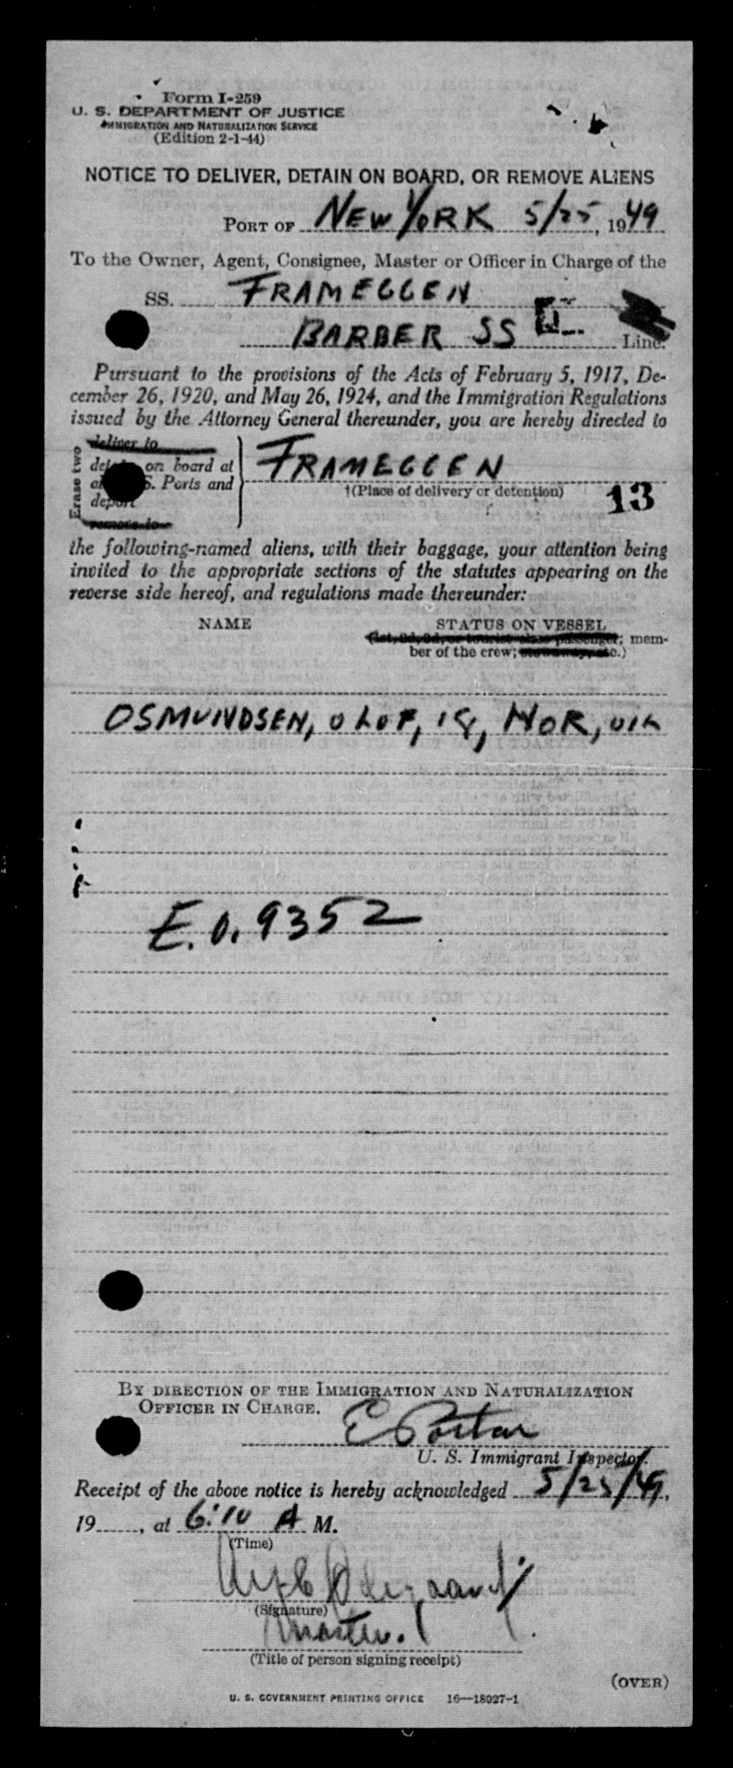 Form I-259
U. S. DEPARTMENT OF JUSTICE
IMMIGRATION AND NATURALIZATION SERVICE
(Edition 2-1-44)
NOTICE TO DELIVER, DETAIN ON BOARD, OR REMOVE ALIENS
PORT OF NEW YORK 5/25, 1949
To the Owner, Agent, Consignee, Master or Officer in Charge of the
SS. FRAMEGGEN
BARBER SS Line.
Pursuant to the provisions of the Acts of February 5, 1917, De-
cember 26, 1920, and May 26, 1924, and the Immigration Regulations
issued by the Attorney General thereunder, you are hereby directed to
Erase two
deliver to
on board at
S. Ports and
deport
remove to
FRAMEGGEN
†(Place of delivery or detention)
13
the following-named aliens, with their baggage, your attention being
invited to the appropriate sections of the statutes appearing on the
reverse side hereof, and regulations made thereunder:
NAME STATUS ON VESSEL
(1st, 2d, 3d, or tourist class passenger; mem-
ber of the crew; stowaway, etc.)
OSMUNDSEN, OLOF, 19, NOR,
E.O. 9352
BY DIRECTION OF THE IMMIGRATION AND NATURALIZATION
OFFICER IN CHARGE.
E Porter
U. S. Immigrant Inspector.
Receipt of the above notice is hereby acknowledged 5/25/49,
19......, at 6:10 A M.
(Time)
(Signature)
Master.
(Title of person signing receipt)
(OVER)
U. S. GOVERNMENT PRINTING OFFICE 16—18027-1